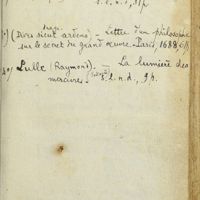 s.l.n.d., 31 p.
(Dives sicut ardens) – Lettre d'un philosophe
sur le secret du grand œuvre. Paris, 1688,
4°/ Lulle (Raymond). – La lumière des
mercures. s.l.n.d., 9 p.